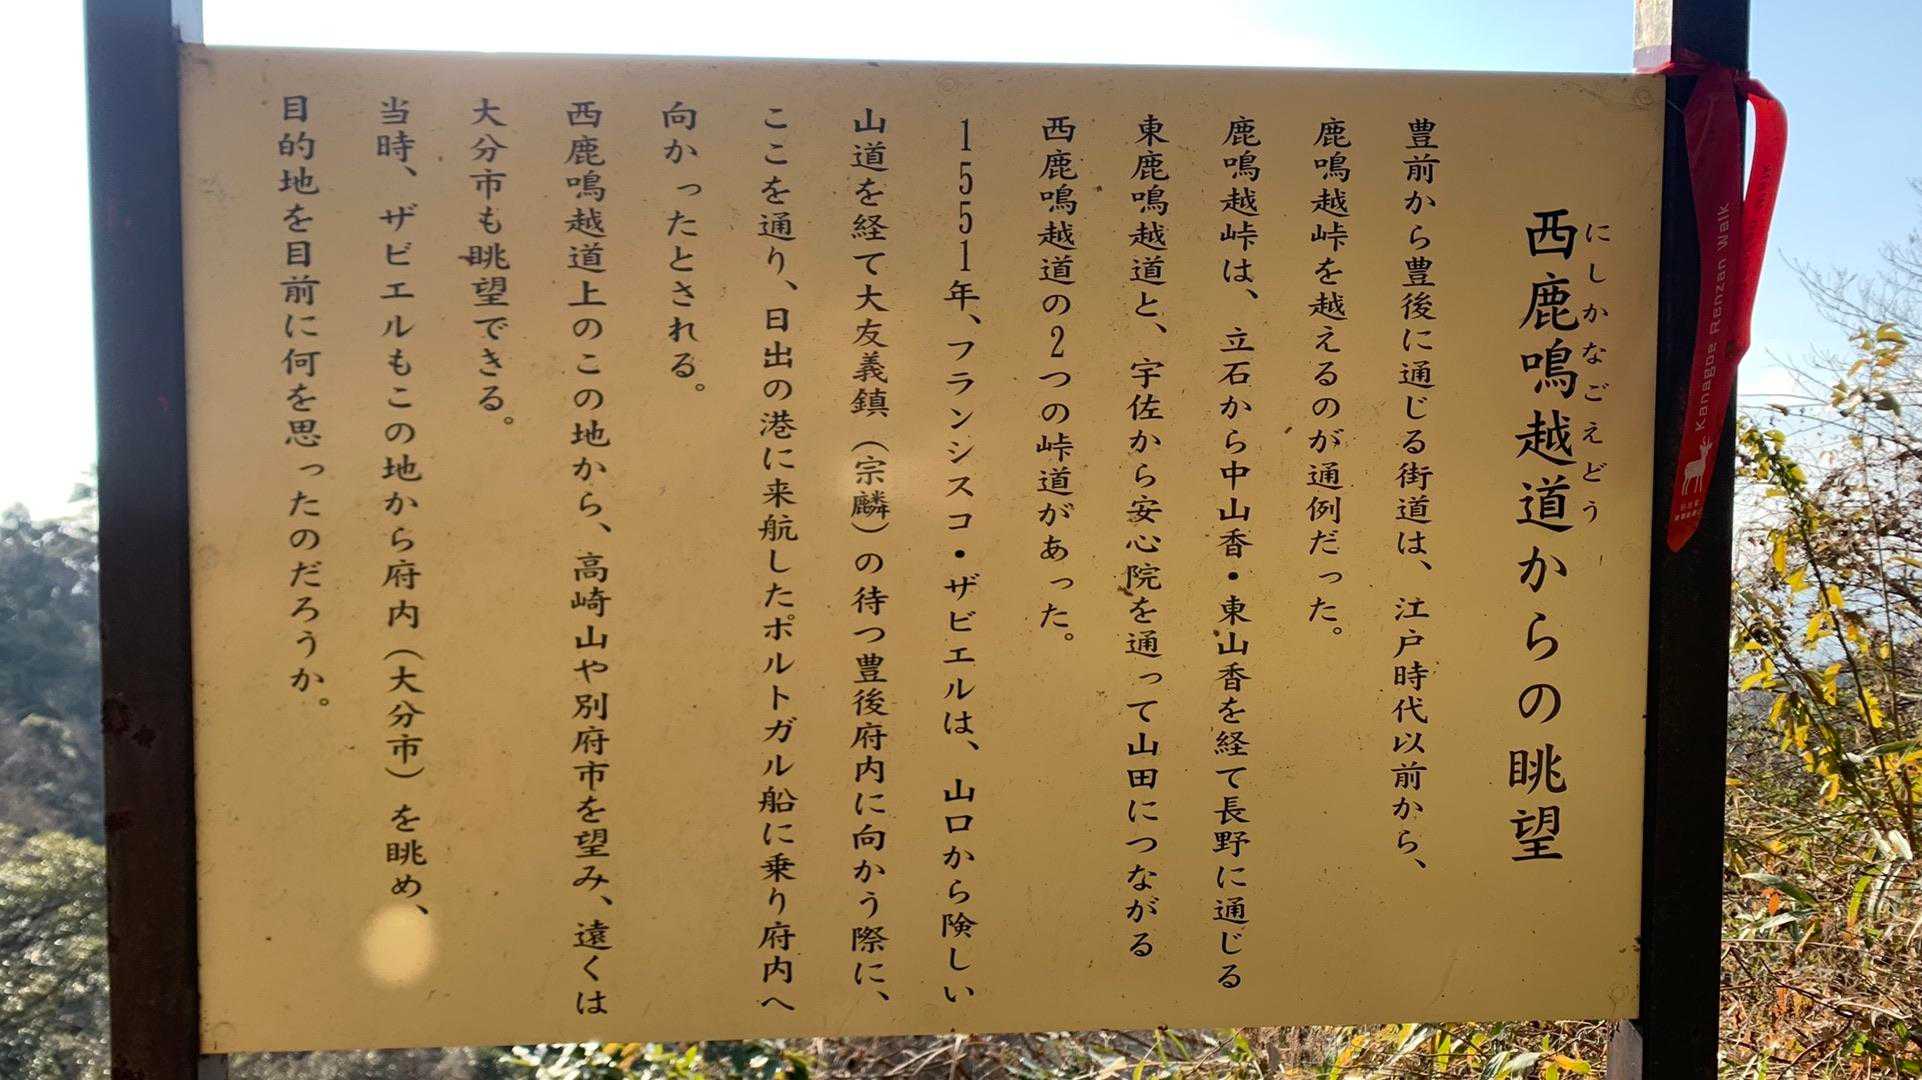 西鹿鳴越道からの眺望
にしかなごえどう
豊前から豊後に通じる街道は、江戸時代以前から、
鹿鳴越峠を越えるのが通例だった。
鹿鳴越峠は、立石から中山香・東山香を経て長野に通じる
東鹿鳴越道と、宇佐から安心院を通って山田につながる
西鹿鳴越道の2つの峠道があった。
1551年、フランシスコ・ザビエルは、山口から険しい
山道を経て大友義鎮（宗麟）の待つ豊後府内に向かう際に、
ここを通り、日出の港に来航したポルトガル船に乗り府内へ
向かったとされる。
西鹿鳴越道上のこの地から、高崎山や別府市を望み、遠くは
大分市も眺望できる。
当時、ザビエルもこの地から府内（大分市）を眺め、
目的地を目前に何を思ったのだろうか。
Kanagoe Renzan Walk